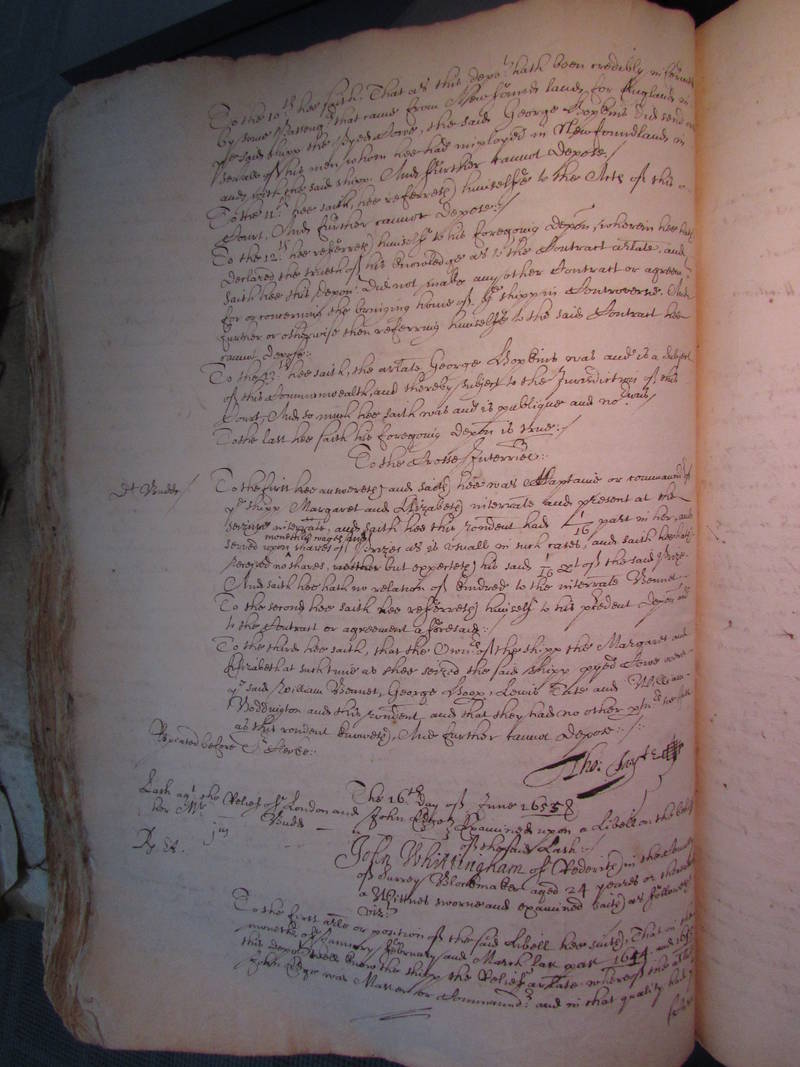 To the 10th hee saith, That as this depot hath been credibly informed
by some Passengrs that came from New found land, for England in
ye said shipp the Pyed Dove, the said George Hopkins did send
severall of his men whom hee had imployed in Newfoundland in
and with the said shipp. And further cannot depose./
To the 11th hee saith, hee referreth himselfe to the Acts of this
Court. And further cannot depose:/
To the 12th hee referreth himselfe to his foregoing depon, wherein hee hath
declared the trueth of his knowledge as to the Contract arlate, and
saith hee this depont did not make any other Contract or agreemt
for or concerning the bringing home of ye shipp in Controversie. And
further or otherwise then referring himselfe to the said Contract hee
cannot depose:
To the 13th hee saith, the arlate George Hopkins was and is a subject
of this Commonwealth, and thereby subject to the Jurisdiction of this
Court, And so much hee saith was and is publique and
To the last hee saith his foregoing depon is true:/
To the Crosse Interries:
To the first hee answereth and saith hee was Captaine or commander of
ye shipp Margaret and Elizabeth interrate and present at the
seizure interrate, and saith hee this rondent had 1/16 part in her, and
monethly wages and
served upon shares of Prizes as is usuall in such cases, and saith hee hath
received no shares, but expecteth his said 1/16 pt of the said Prize.
And saith hee hath no relation of kindred to the interrate Bennet
To the second hee saith hee referreth himselfe to his precedent depon
to the Contract or agreement aforesaid:
To the third hee saith, that the Ownrs of the shipp the Margaret and
Elizabeth at such time as shee seized the said shipp pyed Dove were
ye said William Bennet, George Lewis Tate and William
Weddington and this rondent, and that they had no other
as this rondent knoweth, And further cannot depose:/
Repeated before Dr
Tho:
The 16th Day of June 1655
Lash agt the Reliefe of London and John
Budd
Examined upon a Libell on the behalfe
of the said Lash:/
John Whittingham of Rederith in the County
of Surrey Blockmaker aged 24 yeares or thereabouts
a Witnes sworne and examined saith as followeth
vizt
To the first arle or position of the said Libell hee saith, That in the
moneths of January February and March last past 1654 and
this depot well knew the shipp the Reliefe arlate whereof the arlate
John was Master or Commandr and in that quality had